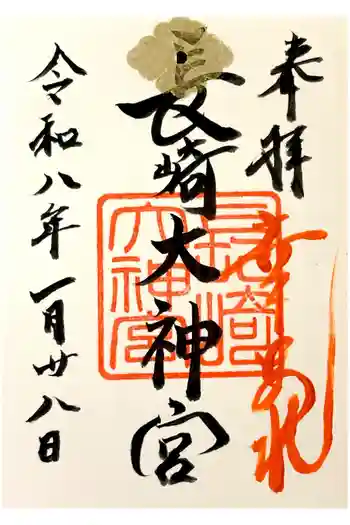 奉拝
長崎大神宮
長崎大神宮
令和八年一月廿八日